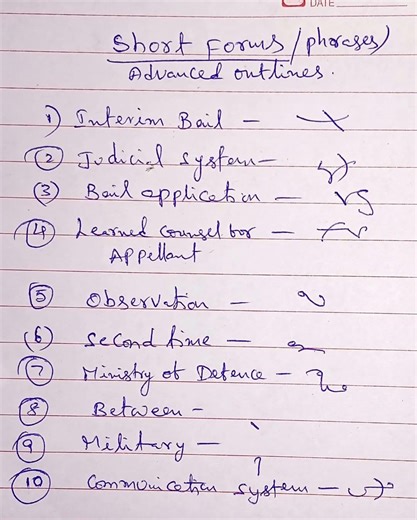 DATE
Short Forms/phrases)
Advanced outlines.
1) Interim Bail -
2 Judicial System-
3 Bail application -
4 Learned counsel for -
Appellant
5 Observation -
(6) Second time -
7 Ministry of Defence -
8 Between -
9 Military -
10 Communication System -